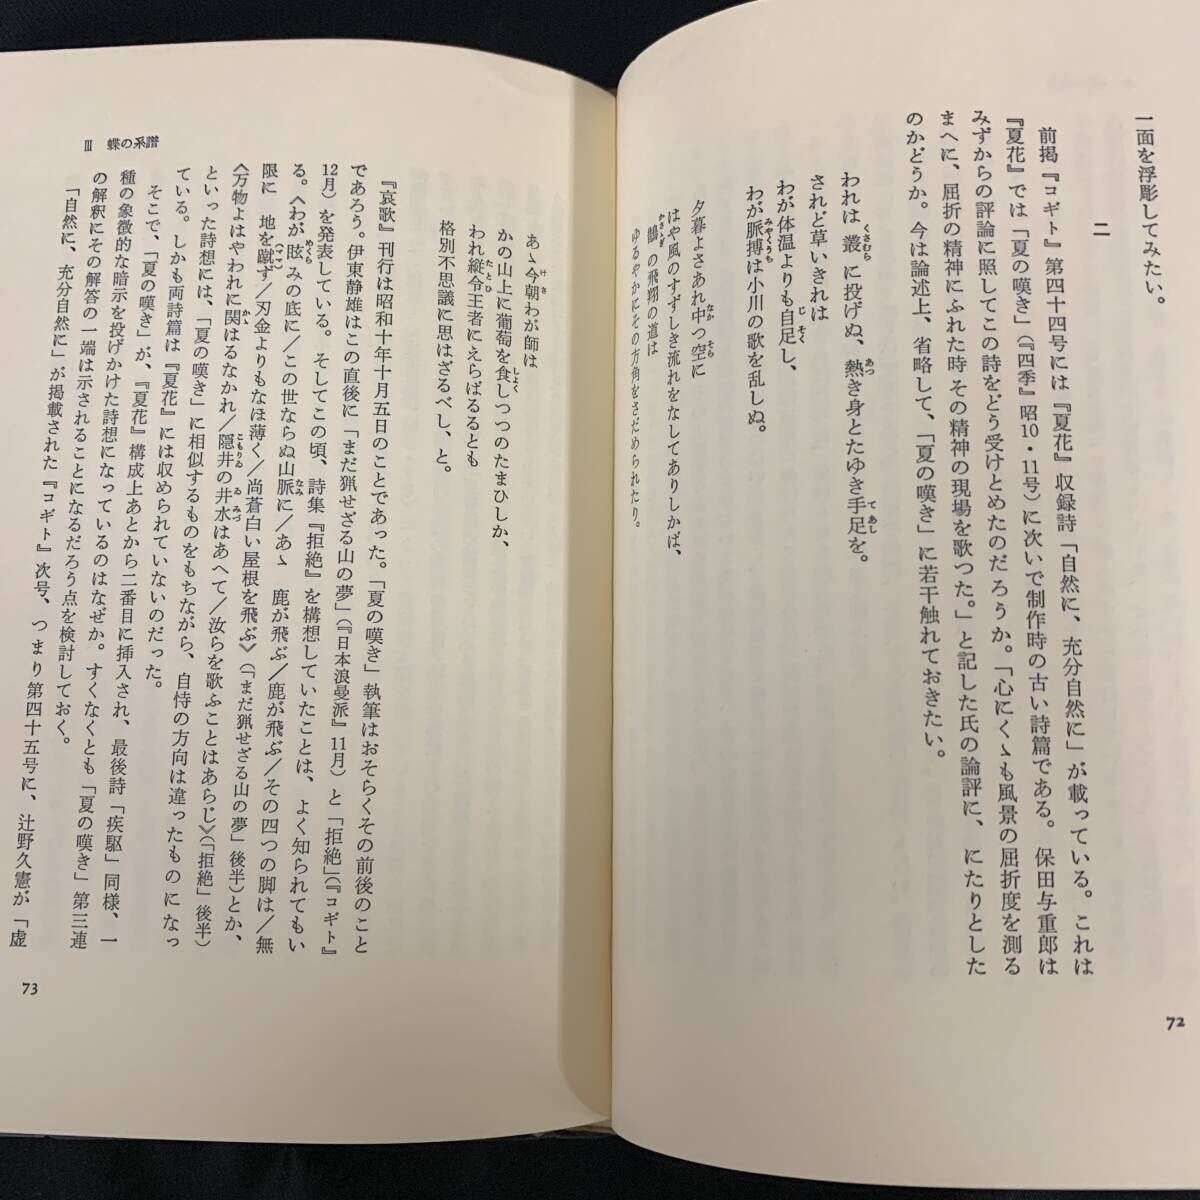 一面を浮彫してみたい。
二
前掲『コギト』第四十四号には『夏花』収録詩「自然に、充分自然に」が載っている。これは
『夏花』では「夏の嘆き」(『四季』昭10・11号)に次いで制作時の古い詩篇である。保田与重郎は
みずからの評論に照してこの詩をどう受けとめたのだろうか。「心にくゝも風景の屈折度を測る
まへに、屈折の精神にふれた時その精神の現場を歌つた。」と記した氏の論評に、にたりとした
のかどうか。今は論述上、省略して、「夏の嘆き」に若干触れておきたい。
われは叢に投げぬ、熱き身とたゆき手足を。
されど草いきれは
わが体温よりも自足し、
わが脈搏は小川の歌を乱しぬ。
夕暮よさあれ中つ空に
はや風のすずしき流れをなしてありしかば、
鵲の飛翔の道は
ゆるやかにその方角をさだめられたり。
72
あゝ今朝わが師は
かの山上に葡萄を食しつつのたまひしか、
われ縦令王者にえらばるるとも
格別不思議に思はざるべし、と。
『哀歌』刊行は昭和十年十月五日のことであった。「夏の嘆き」執筆はおそらくその前後のこと
であろう。伊東静雄はこの直後に「まだ猟せざる山の夢」(『日本浪曼派』11月)と「拒絶」(『コギト』
12月)を発表している。そしてこの頃、詩集『拒絶』を構想していたことは、よく知られてもい
る。〈わが眩みの底に/この世ならぬ山脈に/あゝ 鹿が飛ぶ/鹿が飛ぶ/その四つの脚は/無
限に 地を蹴ず/刃金よりもなほ薄く/尚蒼白い屋根を飛ぶ〉(「まだ猟せざる山の夢」後半)とか、
〈万物よはやわれに関はるなかれ/隠井の井水はあへて/汝らを歌ふことはあらじ〉(「拒絶」後半)
といった詩想には、「夏の嘆き」に相似するものをもちながら、自恃の方向は違ったものになっ
ている。しかも両詩篇は『夏花』には収められていないのだった。
そこで、「夏の嘆き」が、『夏花』構成上あとから二番目に挿入され、最後詩「疾駆」同様、一
種の象徴的な暗示を投げかけた詩想になっているのはなぜか。すくなくとも「夏の嘆き」第三連
の解釈にその解答の一端は示されることになるだろう点を検討しておく。
「自然に、充分自然に」が掲載された『コギト』次号、つまり第四十五号に、辻野久憲が「虚
Ⅲ 蝶の系譜
73